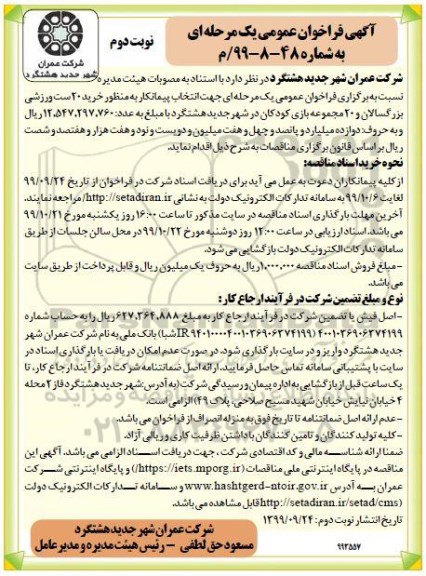 آگهی فراخوان عمومی یک مرحله ای
به شماره ۴۸-۸-۹۹/م
نوبت دوم
شرکت عمران
شهر جدید هشتگرد
شرکت عمران شهر جدید هشتگرد در نظر دارد با استناد به مصوبات هیئت مدیره
نسبت به برگزاری فراخوان عمومی یک مرحله ای جهت انتخاب پیمانکار به منظور خرید ۲۰ ست ورزشی
بزرگسالان و ۲۰ مجموعه بازی کودکان در شهر جدید هشتگرد با مبلغ به عدد: ۱۲,۵۴۷,۲۹۷,۷۶۰ ریال
و به حروف: دوازده میلیارد و پانصد و چهل و هفت میلیون و دویست و نود و هفت هزار و هفتصد و شصت
ریال بر اساس قانون برگزاری مناقصات به شرح ذیل اقدام نماید.
نحوه خرید اسناد مناقصه:
از کلیه پیمانکاران دعوت به عمل می آید برای دریافت اسناد شرکت در فراخوان از تاریخ ۹۹/۰۹/۲۴
لغایت ۹۹/۱۰/۶ به سامانه تدارکات الکترونیک دولت به نشانی http://setadiran.ir/ مراجعه نمایند.
آخرین مهلت بارگذاری اسناد مناقصه در سایت مذکور تا ساعت ۱۶:۰۰ روز یکشنبه مورخ ۹۹/۱۰/۲۱
می باشد. اسناد ارزیابی در ساعت ۱۲:۰۰ روز دوشنبه مورخ ۹۹/۱۰/۲۲ در محل سالن جلسات از طریق
سامانه تدارکات الکترونیک دولت بازگشایی می شود.
- مبلغ فروش اسناد مناقصه ۱,۰۰۰,۰۰۰ ریال به حروف یک میلیون ریال و قابل پرداخت از طریق سایت
می باشد.
نوع و مبلغ تضمین شرکت در فرآیند ارجاع کار:
-اصل فیش یا تضمین شرکت در فرآیند ارجاع کار به مبلغ ۶۲۷,۳۶۴,۸۸۸ ریال را به حساب شماره
۴۰۰۱۰۳۶۹۰۶۳۷۴۱۹۹ (شبا) بانک ملی به نام شرکت عمران شهر
جدید هشتگرد واریز و در سایت بارگذاری شود. در صورت عدم امکان دریافت یا بارگذاری اسناد در
سایت با پشتیبانی سامانه تماس حاصل فرمایید. ارائه اصل ضمانتنامه شرکت در فرآیند ارجاع کار، تا
یک ساعت قبل از بازگشایی به اداره پیمان و رسیدگی شرکت (به آدرس: شهر جدید هشتگرد فاز ۲ محله
۴ خیابان نیایش خیابان شهید مسیح صلاحی، پلاک ۴۹) الزامی است.
- عدم ارائه اصل ضمانتنامه تا تاریخ فوق به منزله انصراف از فراخوان می باشد.
- کلیه تولید کنندگان و تامین کنندگان با داشتن ظرفیت کاری و ریالی آزاد.
ضمنا ارائه شناسه ملی و کد اقتصادی شرکت، جهت دریافت اسناد الزامی می باشد. آگهی این
مناقصه در پایگاه اینترنتی ملی مناقصات (https://iets.mporg.ir/) و پایگاه اینترنتی شرکت
عمران به آدرس www.hashtgerd-ntoir.gov.ir و سامانه تدارکات الکترونیک دولت
(http://setadiran.ir/setad/cms) قابل مشاهده می باشد.
تاریخ انتشار نوبت دوم: ۱۳۹۹/۰۹/۲۴
شرکت عمران شهر جدید هشتگرد
مسعود حق لطفی - رئیس هیئت مدیره و مدیر عامل
۹۹۳۵۵۷